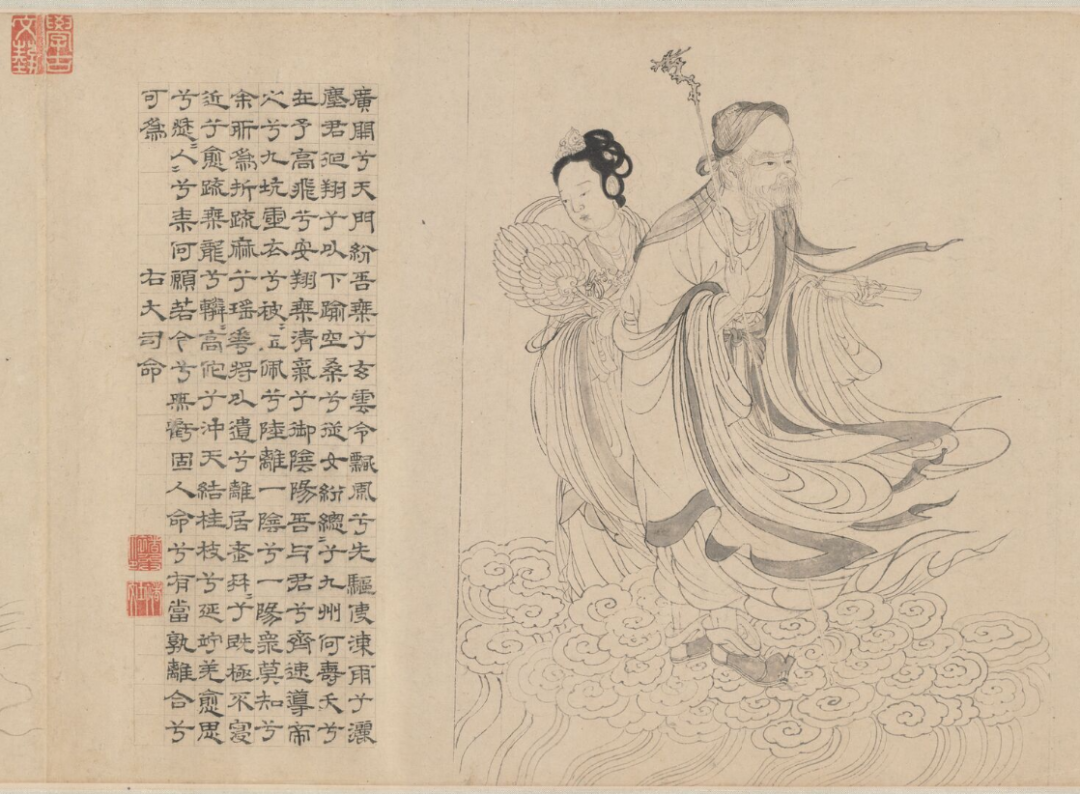 廣開兮天門紛吾乘兮玄雲令飄風兮先驅使涷雨兮灑
塵君迴翔兮以下踰空桑兮從女紛總〻兮九州何壽夭兮
在予高飛兮安翔乘清氣兮御陰陽吾与君兮齊速導帝
之兮九坑靈衣兮被〻玉佩兮陸離一陰兮一陽衆莫知兮
余所為折疏麻兮瑤華將以遺兮離居老冉〻兮既極不寖
近兮愈疏乘龍兮轔〻高佗兮沖天結桂枝兮延竚羌愈思
兮愁〻人〻兮柰何願若今兮無虧固人命兮有當孰離合兮
可為
右大司命